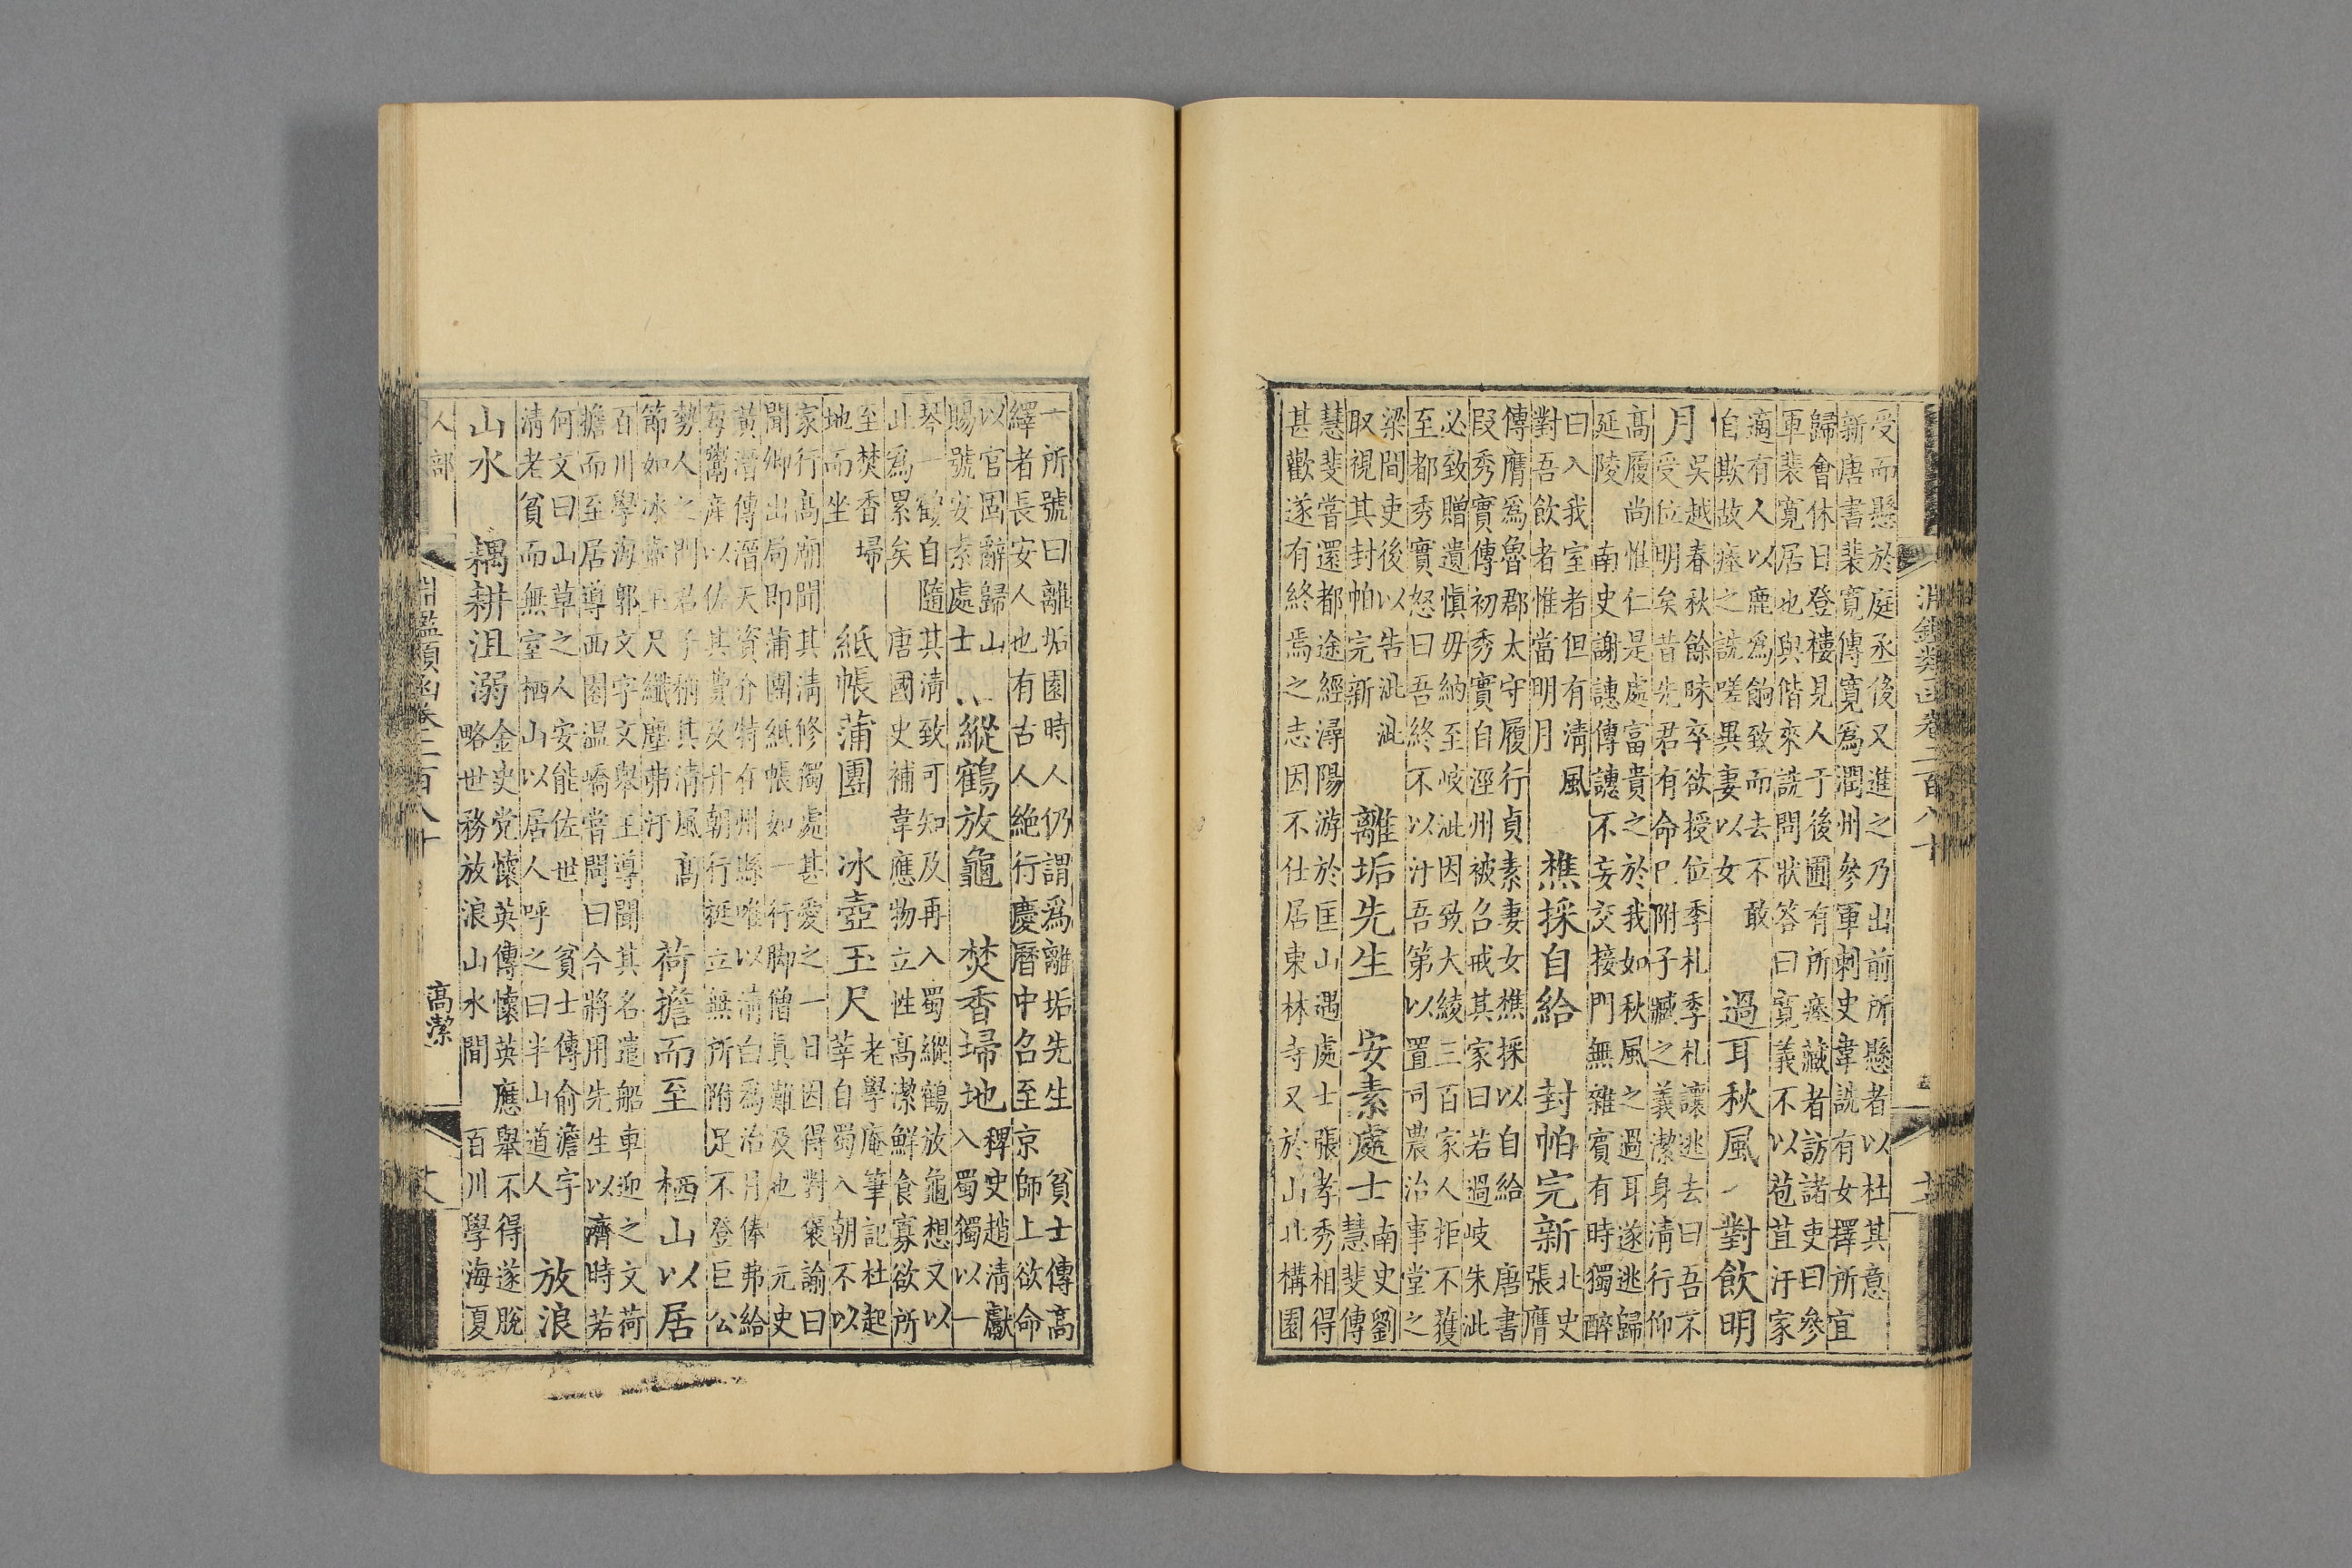 淵鑑類函卷二百八十
受而懸於庭丞後又進之乃出前所懸者以杜其意
新唐書裴寬傳寬爲潤州參軍刺史韋詵有女擇所宜
歸會休日登樓見人于後圃有所瘞藏者訪諸吏曰參
軍裴寬居也與偕來詵問狀答曰寬義不以苞苴汙家
適有人以鹿爲餉致而去不敢
自欺故瘞之詵嗟異妻以女
過耳秋風 對飲明
月
吳越春秋餘昧卒欲授位季札季札讓逃去曰吾不
受位明矣昔先君有命已附子臧之義潔身清行仰
高履尚惟仁是處富貴之於我如秋風之過耳遂逃歸
延陵 南史謝譓傳譓不妄交接門無雜賓有時獨醉
曰入我室者但有清風
對吾飲者惟當明月
樵採自給 封帕完新
北史
張膺
傳膺爲魯郡太守履行貞素妻女樵採以自給 唐書
段秀實傳初秀實自涇州被召戒其家曰若過岐朱泚
必致贈遺慎毋納至岐泚因致大綾三百家人拒不獲
至都秀實怒曰吾終不以汙吾第以置司農治事堂之
梁間吏後以告泚泚
取視其封帕完新
離垢先生 安素處士
南史劉
慧斐傳
慧斐嘗還都途經潯陽游於匡山遇處士張孝秀相得
甚歡遂有終焉之志因不仕居東林寺又於山北構園
一所號曰離垢園時人仍謂爲離垢先生 貧士傳高
繹者長安人也有古人絕行慶曆中召至京師上欲命
以官固辭歸山
賜號安素處士
縱鶴放龜 焚香埽地
稗史趙清獻
入蜀獨以一
琴一鶴自隨其清致可知及再入蜀縱鶴放龜想又以
此爲累矣 唐國史補韋應物立性高潔鮮食寡欲所
至焚香埽
地而坐
紙帳蒲團 冰壺玉尺
老學庵筆記杜起
莘自蜀入朝不以
家行高廟聞其清修獨處甚愛之一日因得對褒諭曰
聞卿出局即蒲團紙帳如一行脚僧真難及也 元史
黃溍傳溍天資介特在州縣唯以清白爲治月俸弗給
每鬻產以佐其費及升朝行挺立無所附足不登巨公
勢人之門君子稱其清風高
節如冰壺玉尺纖塵弗汙
荷擔而至 栖山以居
百川學海郭文字文舉王導聞其名遣船車迎之文荷
擔而至居導西園温嶠嘗問曰今將用先生以濟時若
何文曰山草之人安能佐世 貧士傳俞澹字
清老貧而無室栖山以居人呼之曰半山道人
放浪
山水 耦耕沮溺
金史党懷英傳懷英應舉不得遂脫
略世務放浪山水間 百川學海夏
人部 淵鑑類函卷二百八十 高潔